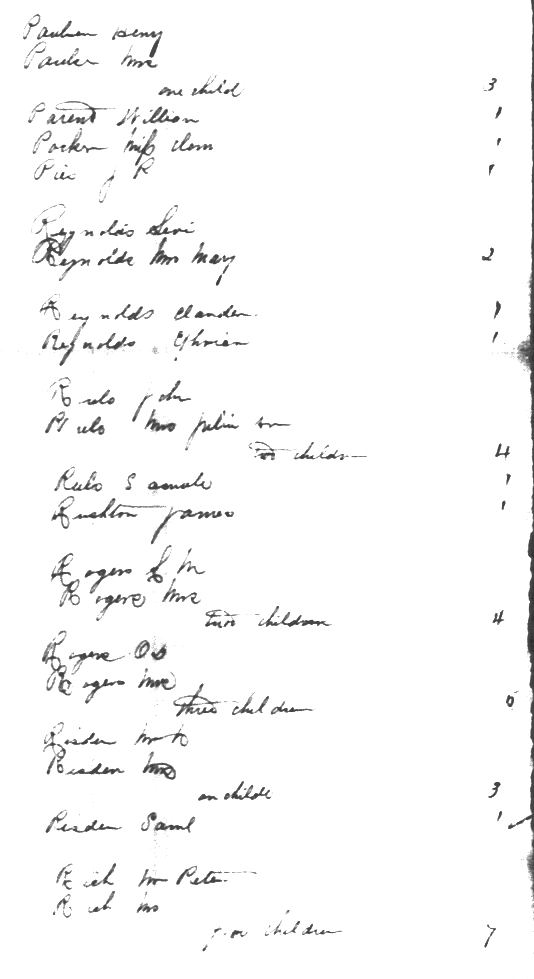 Paulsen Heny
Paulsen Mrs
one child 3
Parent William 1
Miss 1
J R 1
Reynolds Levi
Reynolds Mrs Mary 2
Reynolds 1
Reynolds Ephriam 1
Rulo John
Rulo Mrs
two children 4
Rulo 1
Rushton James 1
Rogers L M
Rogers Mrs
two children 4
Rogers
Rogers Mrs
three children 5
Risden
Risden Mrs
on childe 3
Risden Saml 1
Rich Mr Peter
Rich Ms
children 7